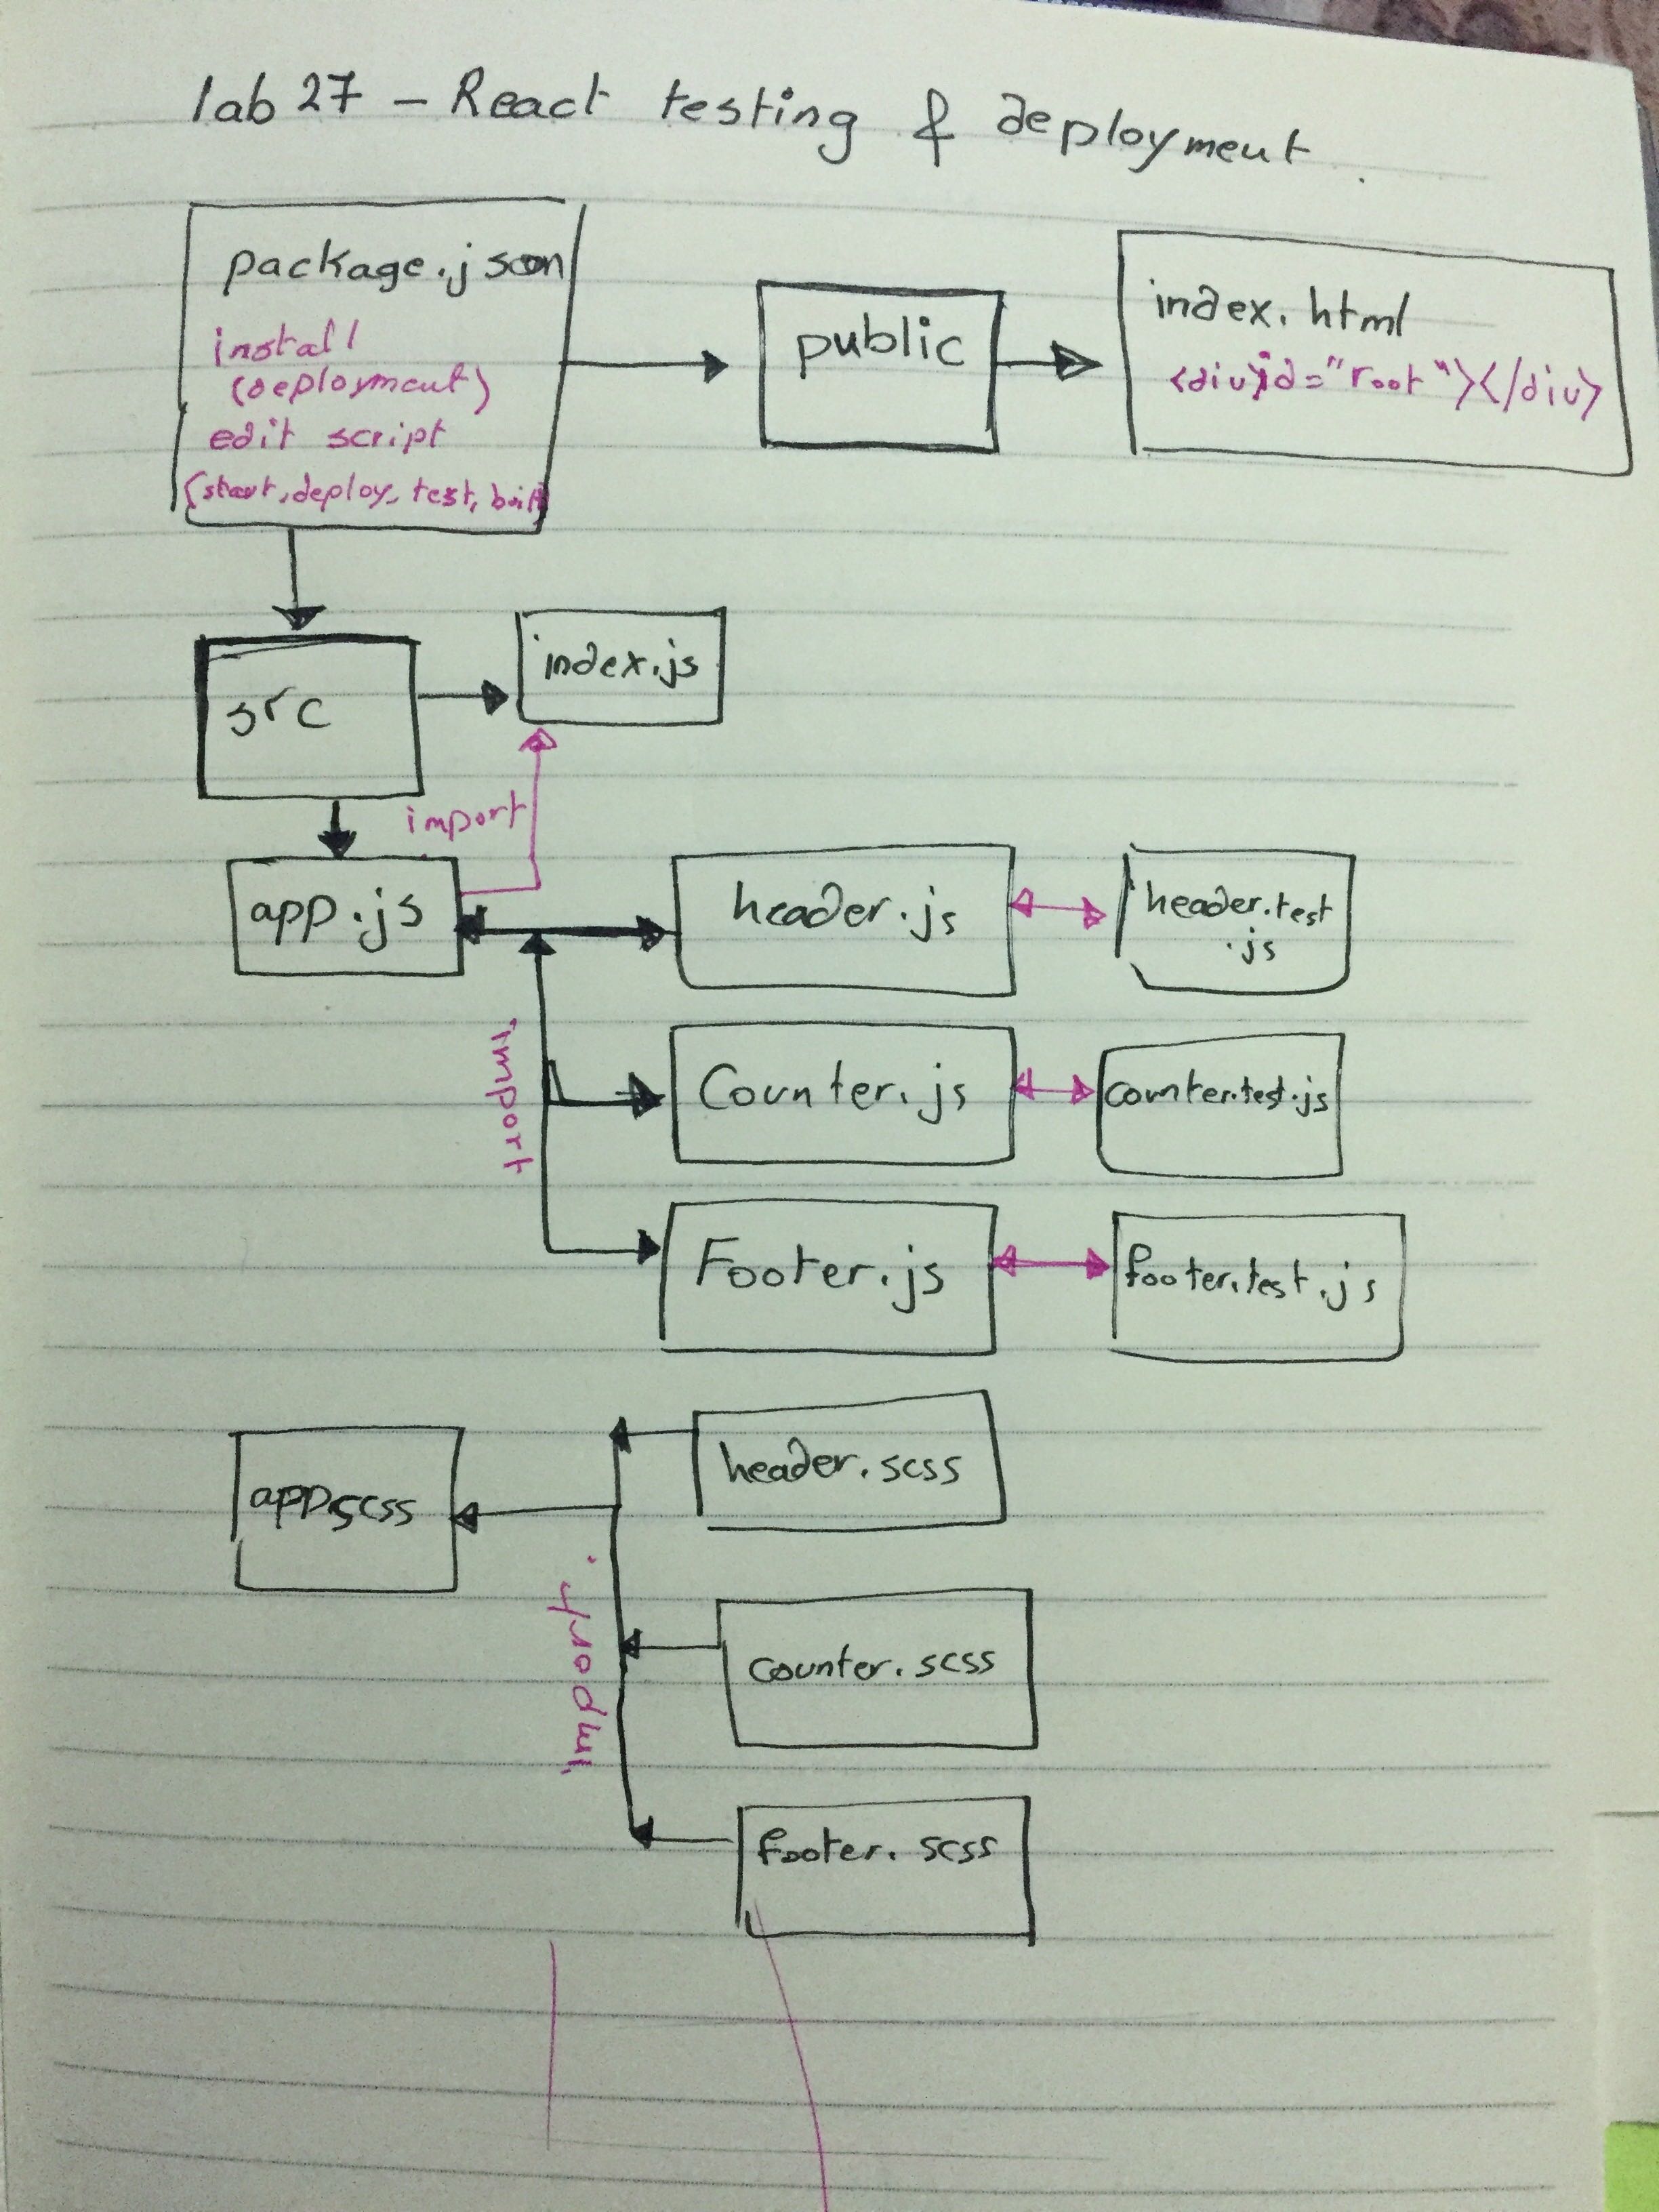 lab 27 - React testing & deployment.
package.json
install
(deployment)
edit script
(start, deploy, test, built)
public
index.html
<div id="root"></div>
src
index.js
import
app.js
header.js
header.test
.js
import
Counter.js
counter.test.js
Footer.js
footer.test.js
header.scss
app.scss
import
counter.scss
footer.scss